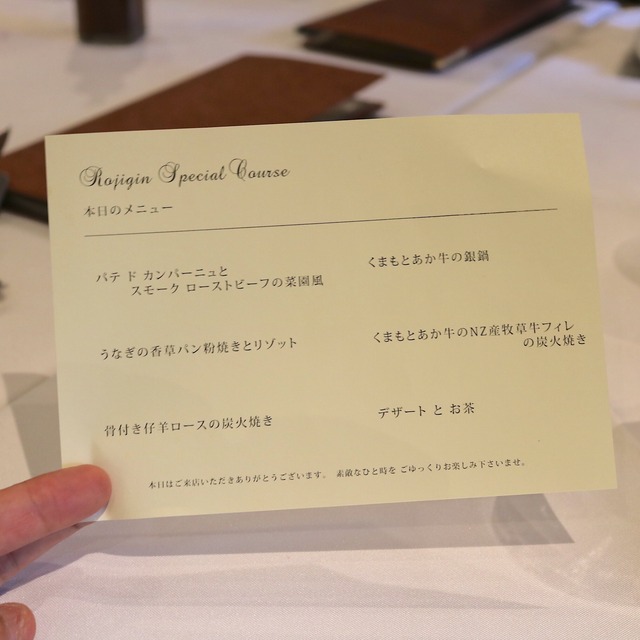 Rojigin Special Course
本日のメニュー
パテ ド カンパーニュと
スモーク ローストビーフの菜園風
うなぎの香草パン粉焼きとリゾット
骨付き仔羊ロースの炭火焼き
くまもとあか牛の銀鍋
くまもとあか牛のNZ産牧草牛フィレ
の炭火焼き
デザート と お茶
本日はご来店いただきありがとうございます。 素敵なひと時を ごゆっくりお楽しみ下さいませ。